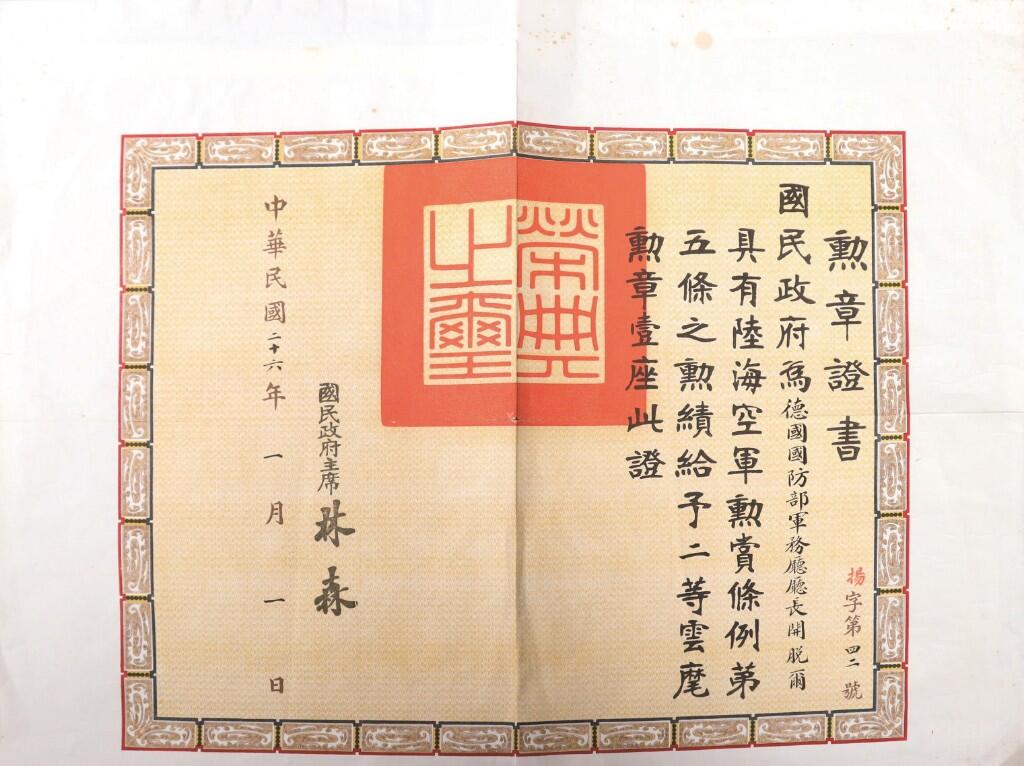 勲章證書
揚字第四二號
國民政府為德國國防部軍務廳廳長開脫爾
具有陸海空軍勲賞條例第
五條之勲績給予二等雲麾
勲章壹座此證
榮典之璽
國民政府主席林森
中華民國二十六年一月一日